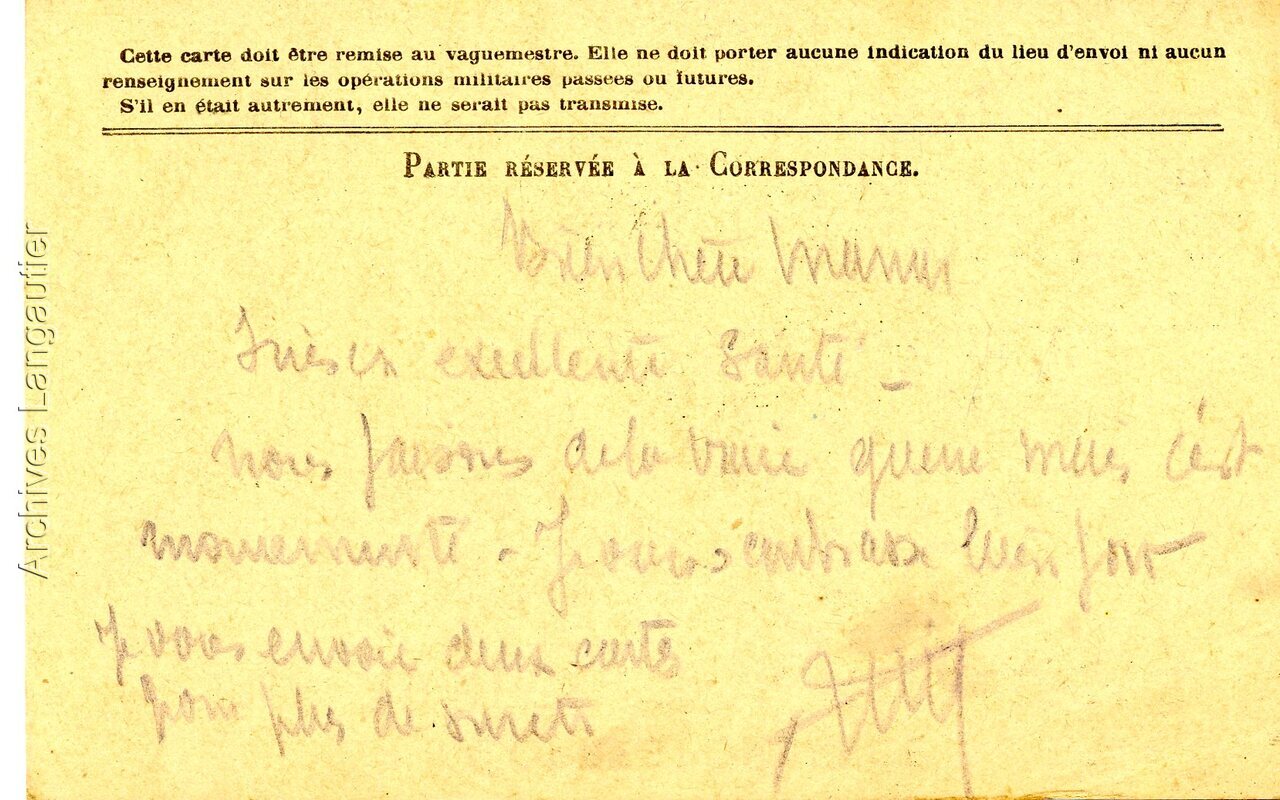 Cette carte doit être remise au vaguemestre. Elle ne doit porter aucune indication du lieu d'envoi ni aucun
renseignement sur les opérations militaires passées ou futures.
S'il en était autrement, elle ne serait pas transmise.
PARTIE RÉSERVÉE À LA CORRESPONDANCE.
Bien chère Maman
excellente santé -
nous faisons de la vraie guerre mais c'est
mouvementé - Je vous embrasse bien fort
Je vous envoie deux cartes
pour plus de sureté
Archives Langautier